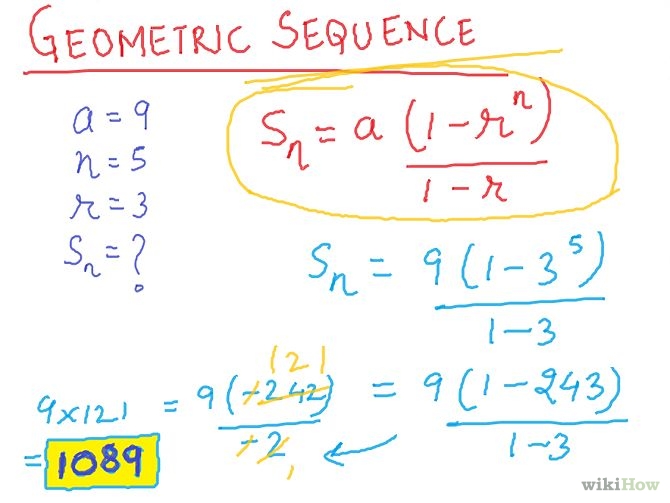 GEOMETRIC SEQUENCE
a = 9
n = 5
r = 3
Sₙ = ?
Sₙ = a (1 - rⁿ) / 1 - r
Sₙ = 9 (1 - 3⁵) / 1 - 3
= 9 (1 - 243) / 1 - 3
121
9 × 121 = 9 (-242) / -2
1
= 1089
wikiHow